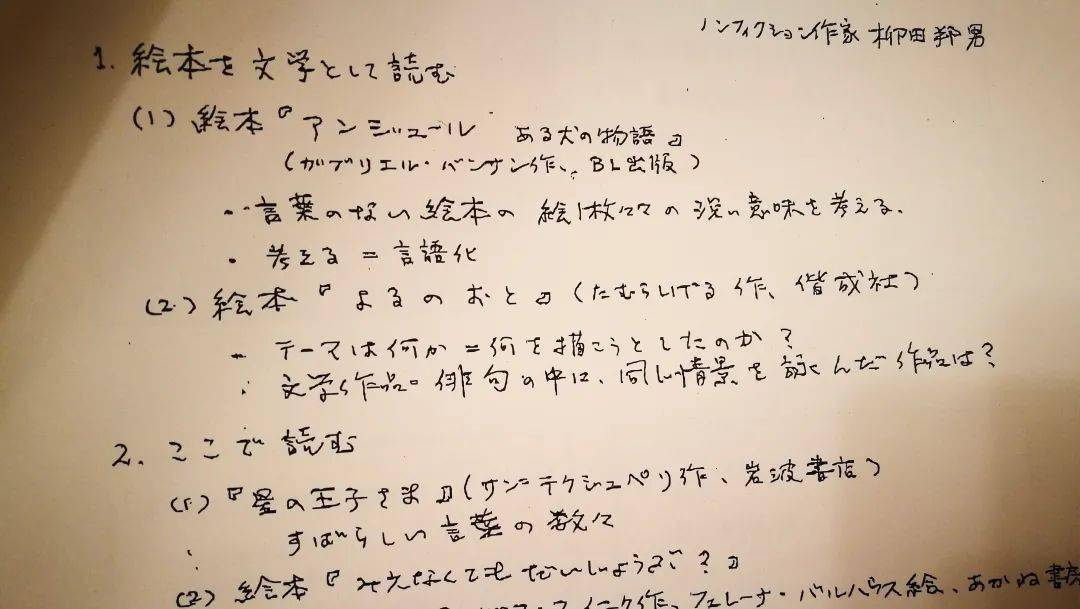 ノンフィクション作家 柳田邦男
1. 絵本を文学として読む
(1) 絵本『アンジュール ある犬の物語』
(ガブリエル・バンサン作、BL出版)
・言葉のない絵本の絵1枚々々の深い意味を考える。
・考える=言語化
(2) 絵本『よるのおと』(たむらしげる作、偕成社)
・テーマは何か=何を描こうとしたのか?
・文学作品・俳句の中に、同じ情景を詠んだ作品は?
2. ここで読む
(1)『星の王子さま』(サン=テクジュペリ作、岩波書店)
すばらしい言葉の数々
(2) 絵本『みえなくてもだいじょうぶ?』
作、フェレーナ・バルハウス絵、あかね書房